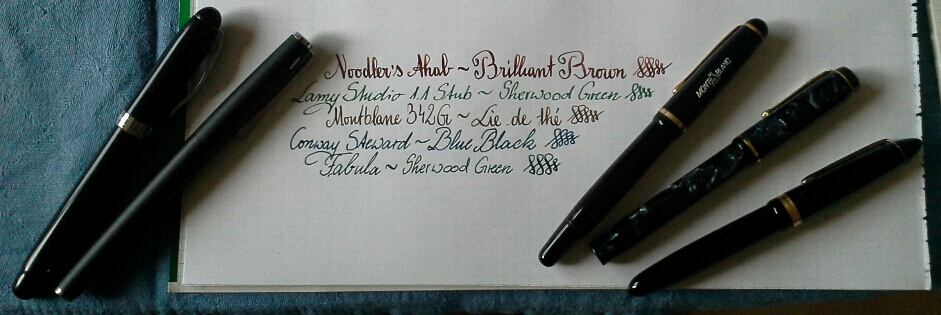 Noodler's Ahab ~ Brilliant Brown
Lamy Studio 1.1 Stub ~ Sherwood Green
Montblanc 342G ~ Lie de thé
Conway Steward ~ Blue Black
Fabula ~ Sherwood Green
MONTBLANC